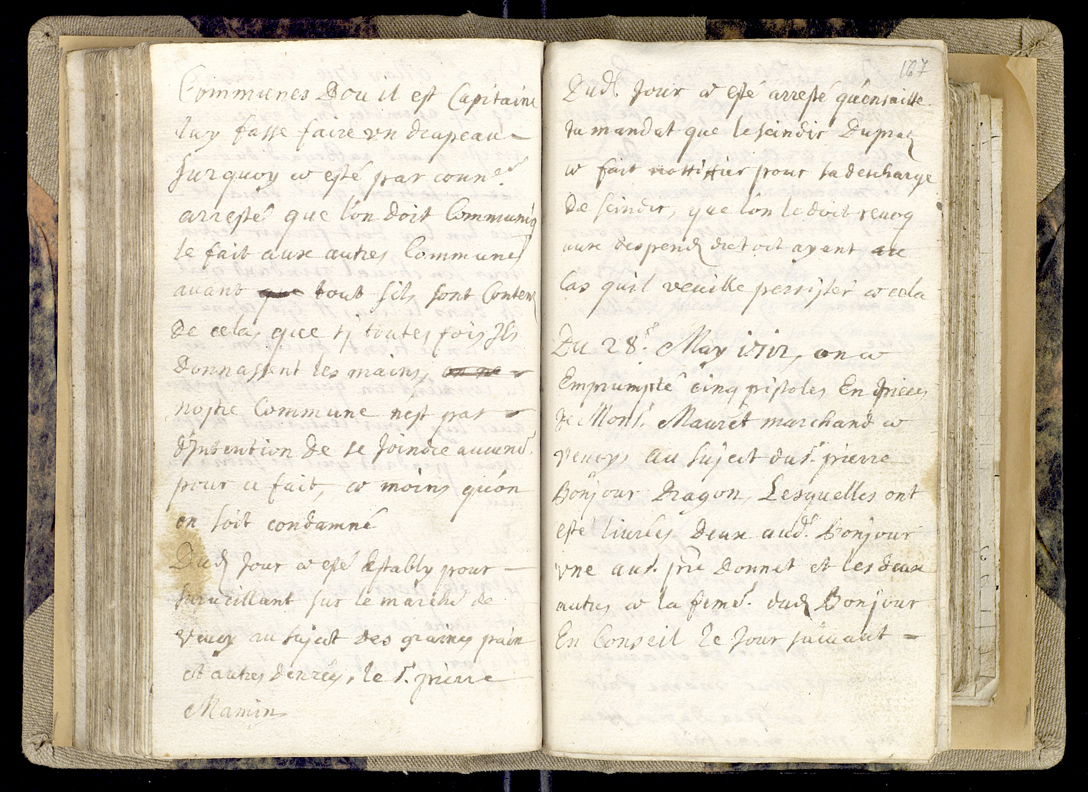 Communes Dou il est Capitaine
luy fasse faire un drapeau
surquoy a esté par connel
arresté que lon doit Communiq
le fait aux autres Communes
avant que tout sils sont Content
De cela, que sy toutes fois Ils
Donnassent les mains,
nostre Commune nest pas
d'Intention de se Joindre aucunet
pour ce fait, a moins quon
en soit condamné
Dud Jour a esté Establly pour
surveillant sur le marché de
Vevey au suject des graines pain
et autres denrées, le Sr. pierre
Mamin
167
Dud Jour a esté arresté quensuitte
du mandat que le scindic Dupraz
a fait nottiffier pour sa descharge
De scindic, que lon le doit revoq
aux despend dietoit ayant au
Cas quil veuille persister a cela
Du 28e May 1712, on a
Emprumpté cinq pistoles En pieces
de Monsr. Mauret marchand a
Vevey, au suject du Sr. pierre
Bonjour Dragon, Lesquelles ont
esté livrées Deux aud. Bonjour
vne au Sr. pre Donnet et les deux
autres a la feme. dud Bonjour
En Conseil le Jour suivant